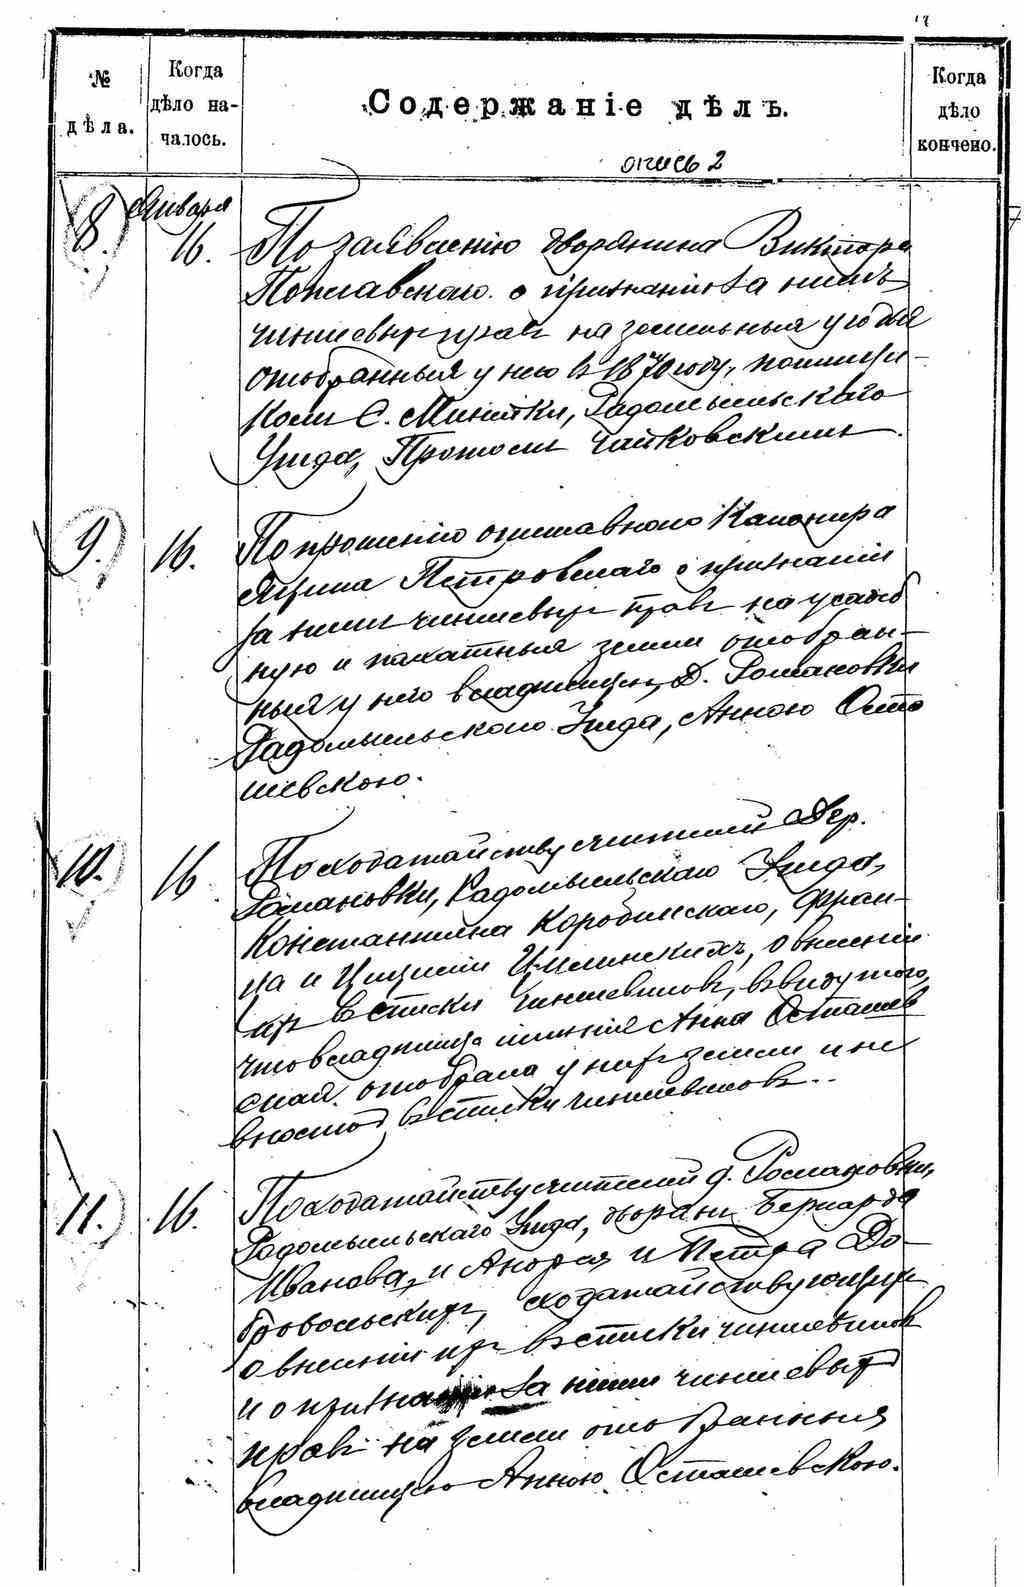 № дѣла.
Когда дѣло началось.
Содержаніе дѣлъ.
Когда дѣло кончено.
опись 2
8. Января 16.
По заявленію дворянина Виктора
Поплавскаго о признаніи за нимъ
чиншевыхъ правъ на земельныя угодья
отобранныя у него въ 1870 году, помѣщи-
комъ С. Минійки, Радомысльскаго
Уѣзда, Чайковскимъ.
9. 16.
По прошенію отставнаго Канонира
Петровскаго о признаніи
за нимъ чиншевыхъ правъ на усадеб
ную и пахатныя земли отобран-
ныя у него владѣлицею Д. Романовки
Радомысльскаго Уѣзда, Анною Оста
шевскою.
10. 16
По ходатайству жителей Дер.
Романовки, Радомысльскаго Уѣзда,
Константина Коробинскаго, Фран-
ца и о внесеніи
ихъ въ списки чиншевиковъ, въ виду того,
что владѣлица имѣнія Анна Осташев
ская отобрала у нихъ земли и не
вноситъ въ списки чиншевиковъ.
11. 16.
По ходатайству жителей д. Романовки,
Радомысльскаго Уѣзда, дворянъ Бернарда
Иванова, и Андрея и Петра До-
бровольскихъ, ходатайствующихъ
о внесеніи ихъ въ списки чиншевиковъ
и о признаніи за ними чиншевыхъ
правъ на земли отобранныя
владѣлицею Анною Осташевскою.